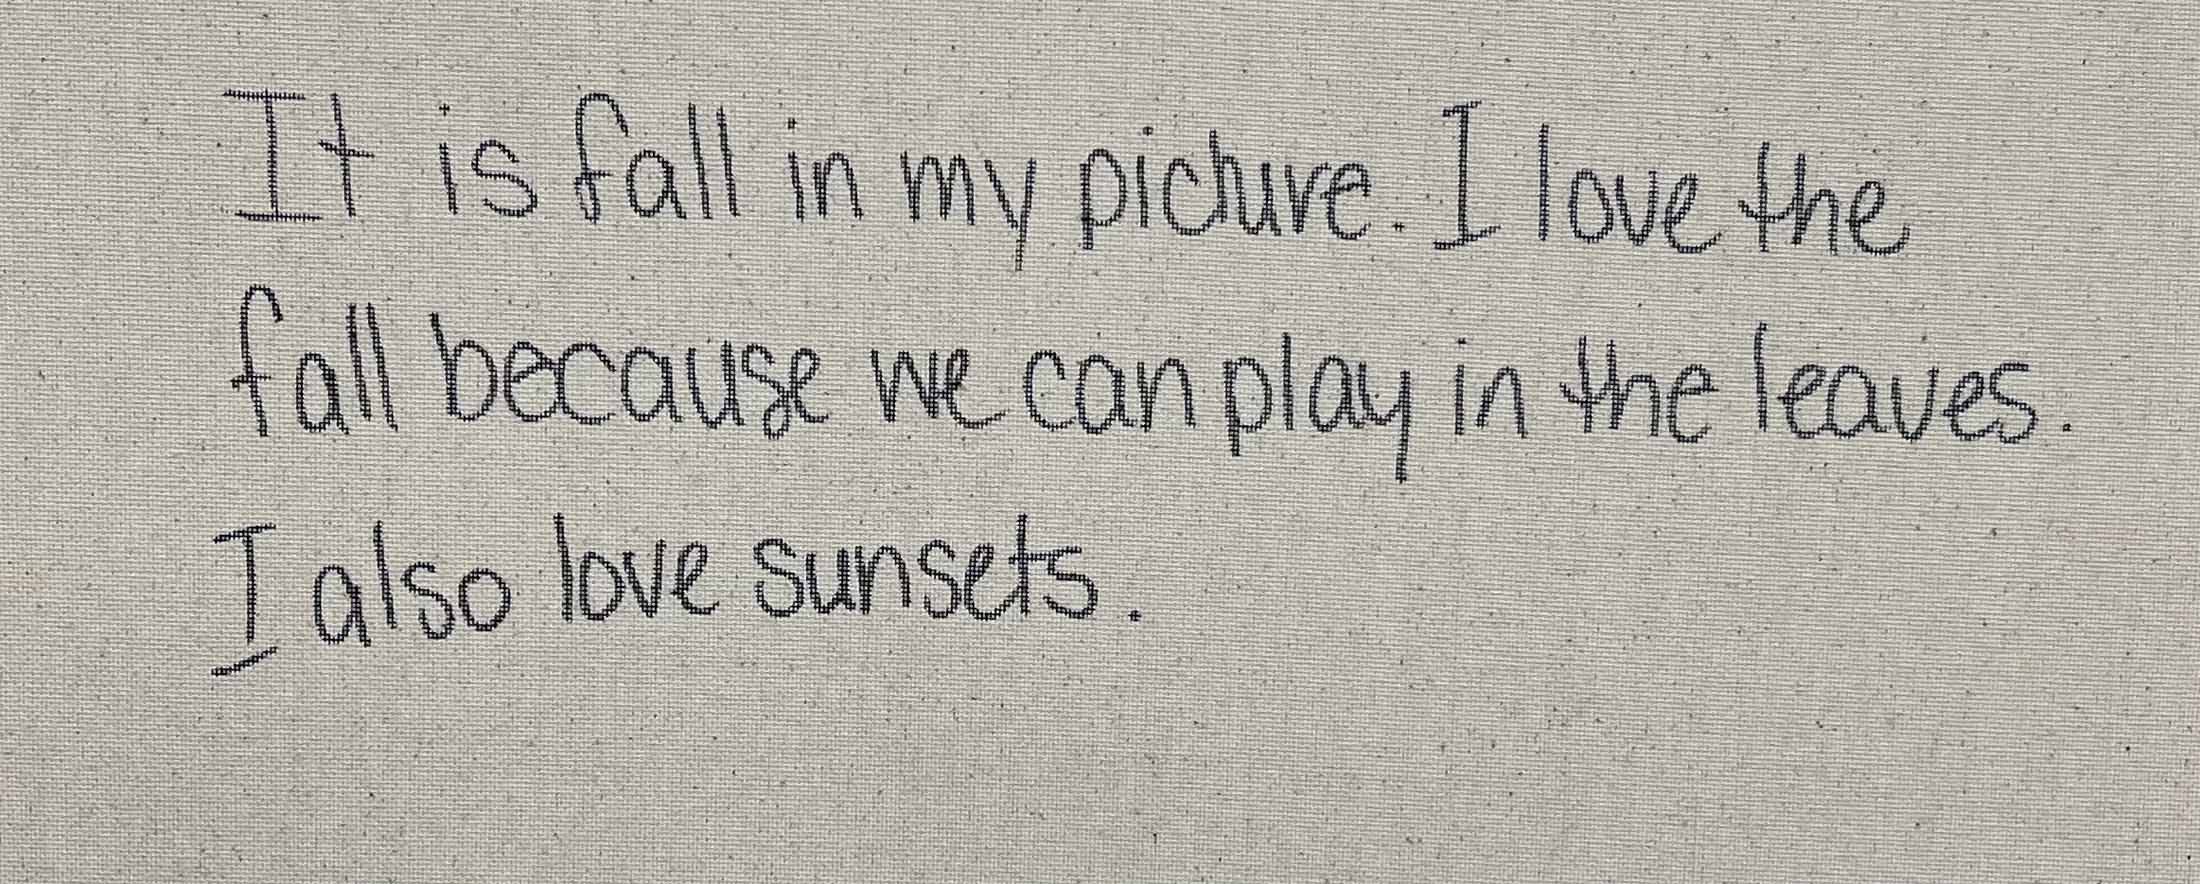 It is fall in my picture. I love the
fall because we can play in the leaves.
I also love sunsets.